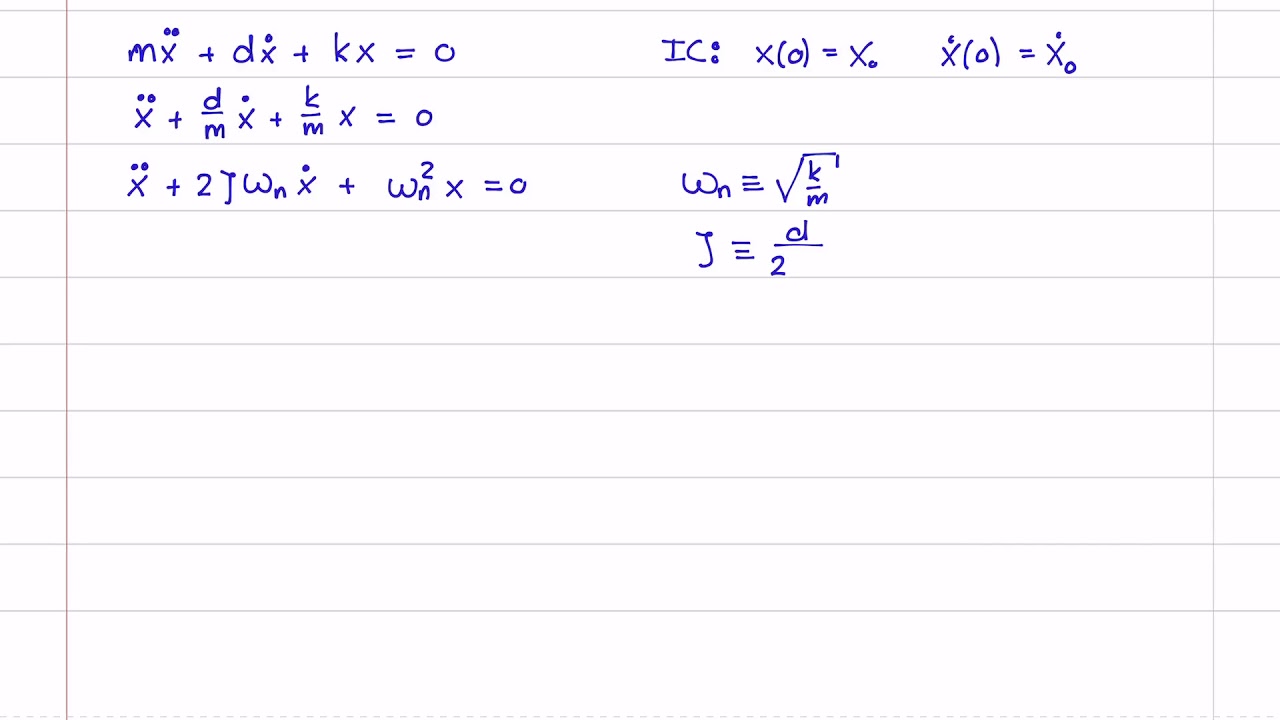 mẍ + dẋ + kx = 0 IC: x(0) = x₀ ẋ(0) = ẋ₀
ẍ + d/m ẋ + k/m x = 0
ẍ + 2ζωₙẋ + ωₙ²x = 0 ωₙ ≡ √(k/m)
ζ ≡ d/2